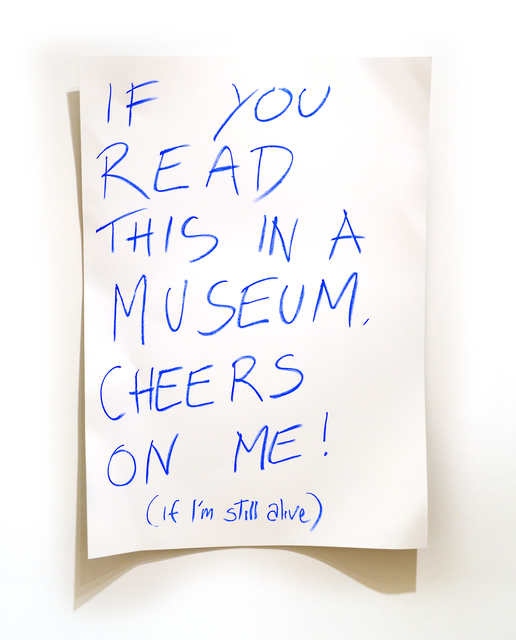 IF YOU
READ
THIS IN A
MUSEUM,
CHEERS
ON ME!
(if I'm still alive)